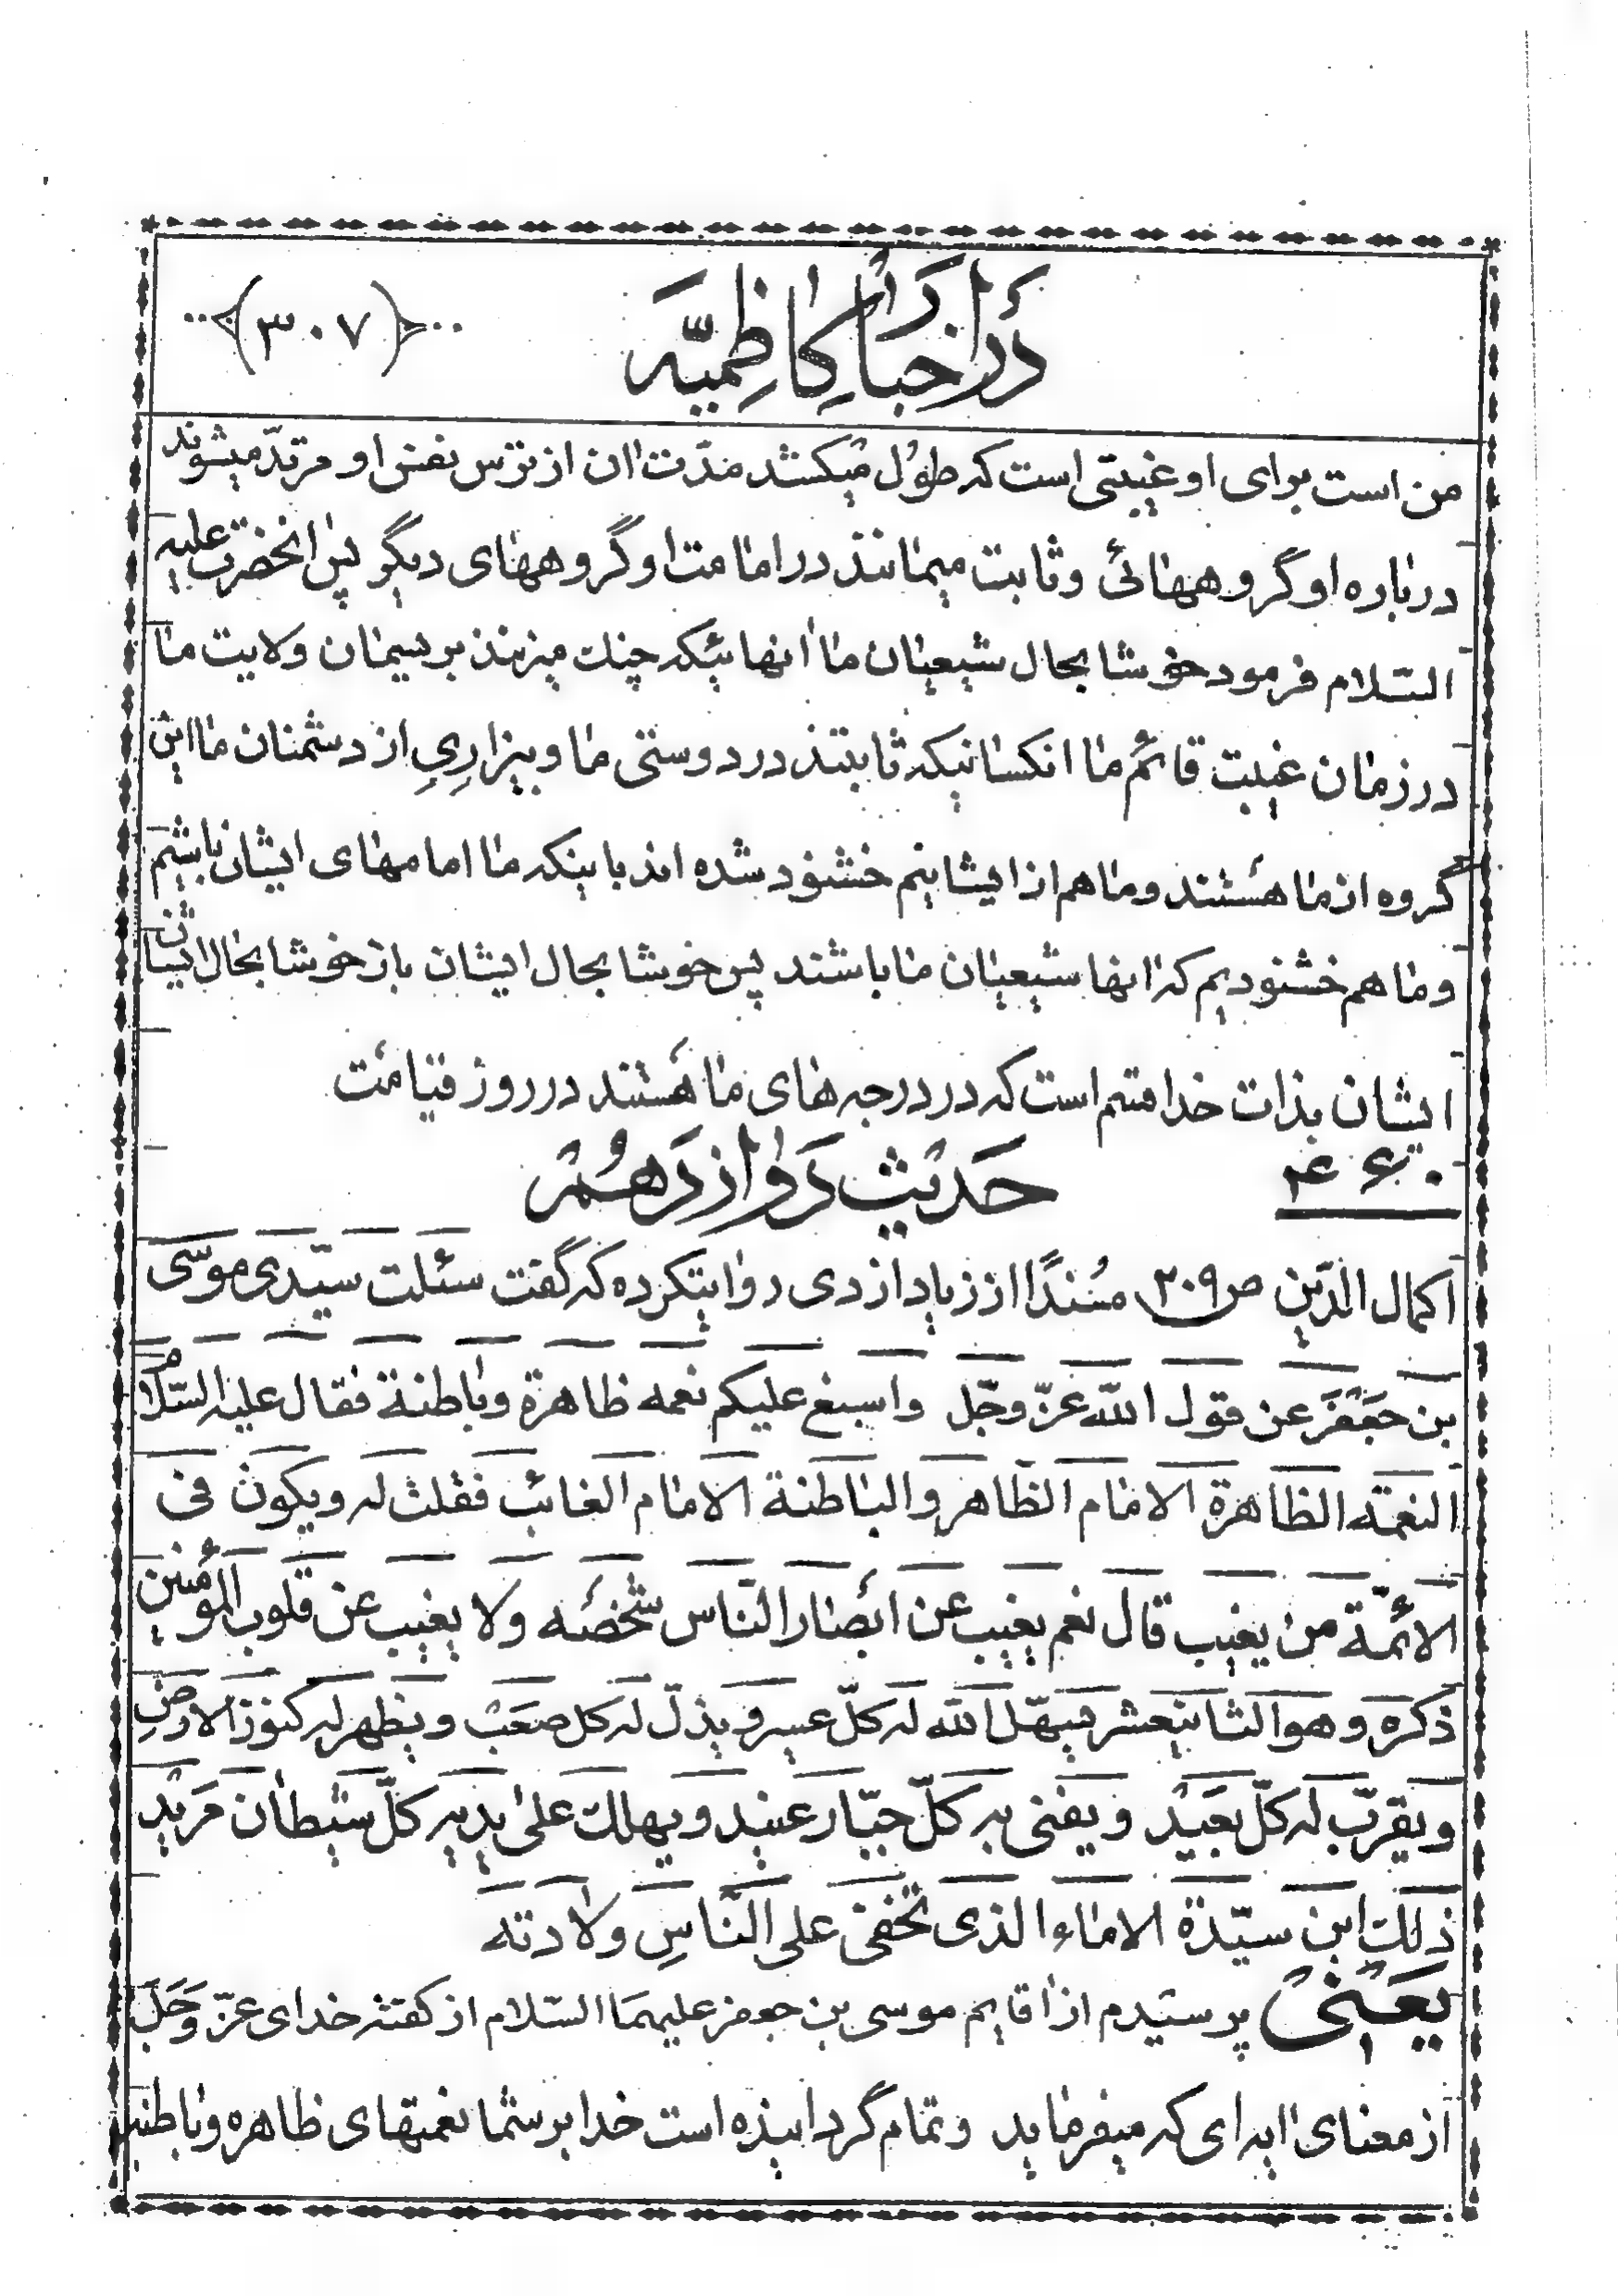 در اخبار کاظمیّه
(۳۰۷)
من است برای او غیبتی است که طول میکشد مدّت ان از ترس نفس او مرتدّ میشوند
درباره او گروههائی و ثابت میمانند در امامت او گروههای دیگر پس انحضرت علیه
السّلام فرمود خوشا بحال شیعیان ما انهائیکه چنك میزنند بریسمان ولایت ما
در زمان غیبت قائم ما انکسانیکه ثابتند در دوستی ما و بیزاریِ از دشمنان ما این
گروه از ما هستند و ما هم از ایشانیم خشنود شده اند باینکه ما امامهای ایشان باشیم
و ما هم خشنودیم که انها شیعیان ما باشند پس خوشا بحال ایشان باز خوشا بحال ایشان
ایشان بذات خدا قسم است که در درجه های ما هستند در روز قیامت
۴۶۰ حدیث دوازدهم
اکمال الدّین ص ۲۰۹ مُسنداً از زیاد ازدی روایتکرده که گفت سئلت سیّدی موسی
بن جعفر عن قول اللّه عزّ وجّل واسبغ علیکم نعمه ظاهرة وباطنة فقال علیه السّلام
النعمته الظاهرة الامام الظّاهر والباطنة الامام الغائب فقلت له ویکون فی
الائمّة من یغیب قال نعم یغیب عن ابصار النّاس شخصه ولا یغیب عن قلوب المؤمنین
ذکره وهو الثانیعشر یسهّل اللّه له کلّ عسیر و یذلّ له کل صعب ویظهر له کنوز الارض
ویقرّب له کلّ بعید ویفنی به کلّ جبّار عنید ویهلك علی یدیه کلّ شیطان مرید
ذلك ابن سیّدة الاماء الذی تخفی علی النّاسِ ولادته
یعنی پرسیدم از اقایم موسی بن جعفر علیهما السّلام از گفته خدای عزّ وجل
از معنای ایه ای که میفرماید و تمام گردانیده است خدا بر شما نعمتهای ظاهره و باطنه